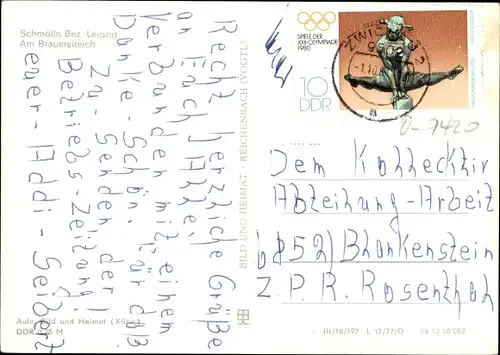 Schmölln Bez. Leipzig
Am Brauereiteich
Recht herzliche Grüße
an Euch Alle,
Verbunden mit einem
Danke-Schön. Für daß
Zu-Senden der
Betriebs-Zeitung!
euer-Addi-Seibert
Aufn. Bild und Heimat (Küas)
DDR 0,25 M
BILD UND HEIMAT · REICHENBACH (VOGTL)
SPIELE DER
XXII. OLYMPIADE
1980
10
DDR
ZWICKAU 2
-1.10
a
0-7420
Dem Kolleecktiv
Abteihung-Arbeit
6852) Blankenstein
Z. P. R. Rosenthal
III/18/197 L 12/77/D 04 13 50 052